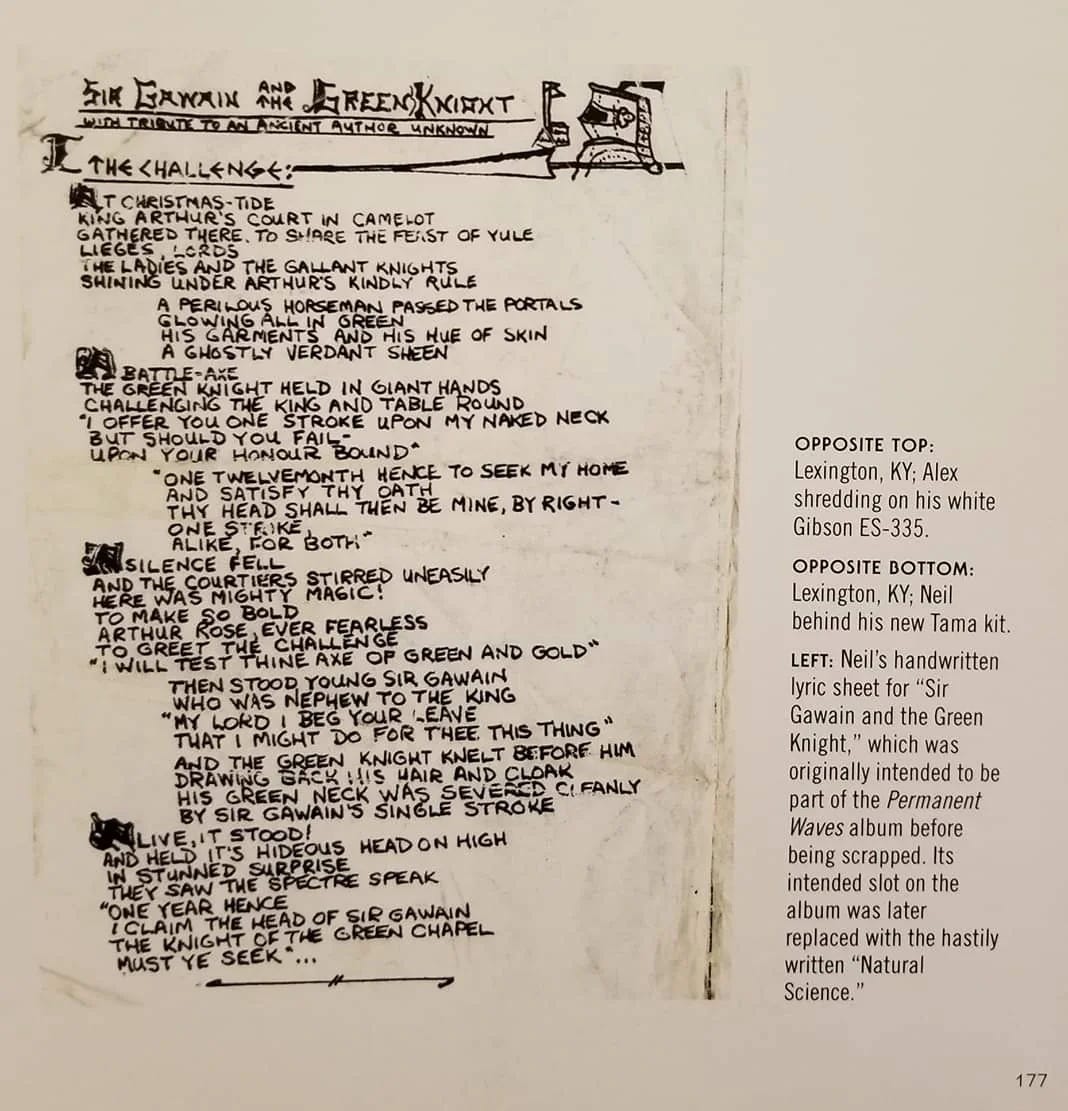 SIR GAWAIN AND THE GREEN KNIGHT
WITH TRIBUTE TO AN ANCIENT AUTHOR UNKNOWN
I THE CHALLENGE:
AT CHRISTMAS-TIDE
KING ARTHUR'S COURT IN CAMELOT
GATHERED THERE, TO SHARE THE FEAST OF YULE
LIEGES, LORDS
THE LADIES AND THE GALLANT KNIGHTS
SHINING UNDER ARTHUR'S KINDLY RULE
A PERILOUS HORSEMAN PASSED THE PORTALS
GLOWING ALL IN GREEN
HIS GARMENTS AND HIS HUE OF SKIN
A GHOSTLY VERDANT SHEEN
A BATTLE-AXE
THE GREEN KNIGHT HELD IN GIANT HANDS
CHALLENGING THE KING AND TABLE ROUND
"I OFFER YOU ONE STROKE UPON MY NAKED NECK
BUT SHOULD YOU FAIL-
UPON YOUR HONOUR BOUND"
"ONE TWELVEMONTH HENCE TO SEEK MY HOME
AND SATISFY THY OATH
THY HEAD SHALL THEN BE MINE, BY RIGHT-
ONE STRIKE,
ALIKE, FOR BOTH"
A SILENCE FELL
AND THE COURTIERS STIRRED UNEASILY
HERE WAS MIGHTY MAGIC!
TO MAKE SO BOLD
ARTHUR ROSE, EVER FEARLESS
TO GREET THE CHALLENGE
"I WILL TEST THINE AXE OF GREEN AND GOLD"
THEN STOOD YOUNG SIR GAWAIN
WHO WAS NEPHEW TO THE KING
"MY LORD I BEG YOUR LEAVE
THAT I MIGHT DO FOR THEE THIS THING"
AND THE GREEN KNIGHT KNELT BEFORE HIM
DRAWING BACK HIS HAIR AND CLOAK
HIS GREEN NECK WAS SEVERED CLEANLY
BY SIR GAWAIN'S SINGLE STROKE
ALIVE, IT STOOD!
AND HELD IT'S HIDEOUS HEAD ON HIGH
IN STUNNED SURPRISE
THEY SAW THE SPECTRE SPEAK
"ONE YEAR HENCE
I CLAIM THE HEAD OF SIR GAWAIN
THE KNIGHT OF THE GREEN CHAPEL
MUST YE SEEK"...
OPPOSITE TOP:
Lexington, KY; Alex
shredding on his white
Gibson ES-335.
OPPOSITE BOTTOM:
Lexington, KY; Neil
behind his new Tama kit.
LEFT: Neil's handwritten
lyric sheet for "Sir
Gawain and the Green
Knight," which was
originally intended to be
part of the Permanent
Waves album before
being scrapped. Its
intended slot on the
album was later
replaced with the hastily
written "Natural
Science."
177